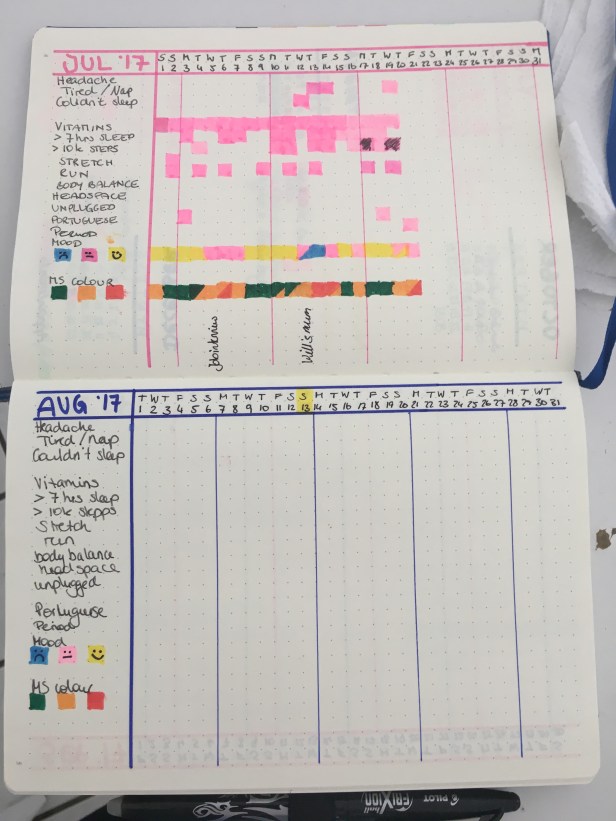 JUL '17
S S M T W T F S S M T W T F S S M T W T F S S M T W T F S S M
1 2 3 4 5 6 7 8 9 10 11 12 13 14 15 16 17 18 19 20 21 22 23 24 25 26 27 28 29 30 31
Headache
Tired / Nap
Couldn't sleep
VITAMINS
> 7 hrs SLEEP
> 10k STEPS
STRETCH
RUN
BODY BALANCE
HEADSPACE
UNPLUGGED
PORTUGUESE
PERIOD
MOOD
MS COLOUR
Jobinterview
AUG '17
T W T F S S M T W T F S S M T W T F S S M T W T F S S M T W T
1 2 3 4 5 6 7 8 9 10 11 12 13 14 15 16 17 18 19 20 21 22 23 24 25 26 27 28 29 30 31
Headache
Tired / nap
Couldn't sleep
Vitamins
> 7 hrs sleep
> 10k stepps
Stretch
run
body balance
headspace
unplugged
Portuguese
Period
Mood
MS colour
PILOT FRIXION ball